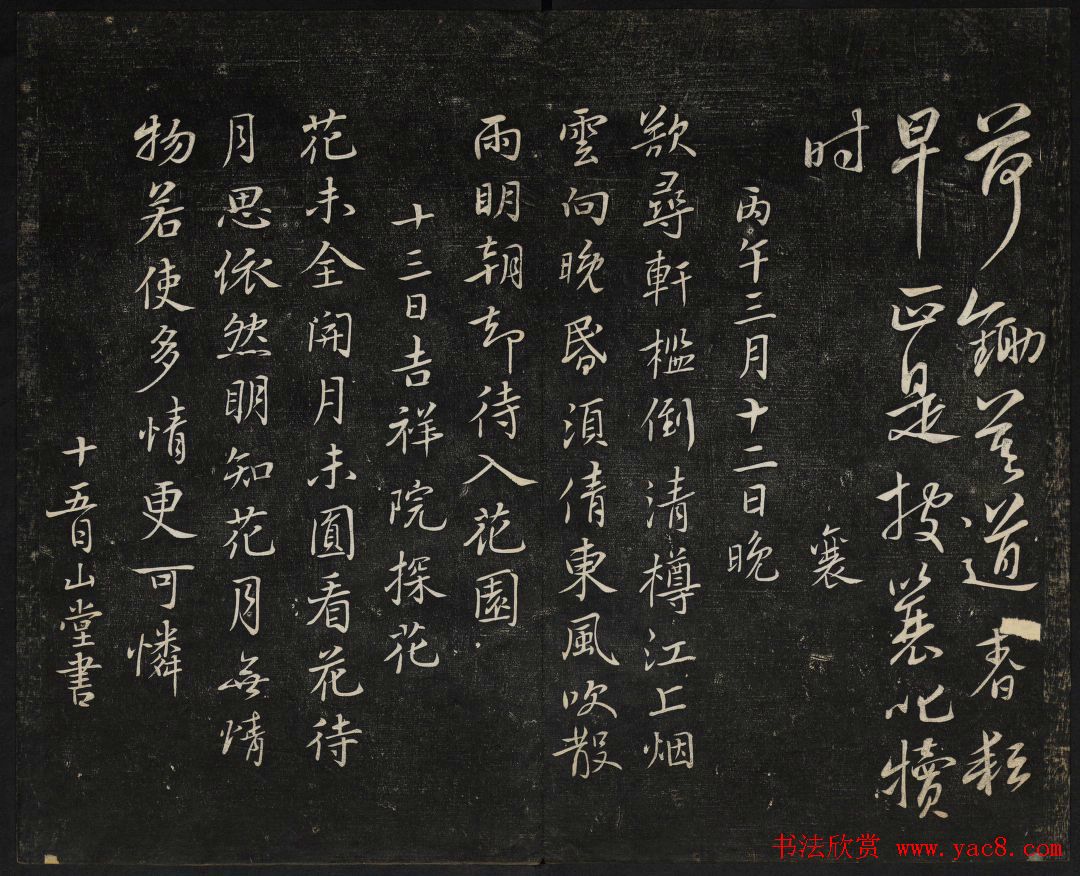 荷鋤莫道春耘
早正是披蓑叱犢
时
襄
丙午三月十二日晚
欲尋軒檻倒清樽江上烟
雲向晚昏須倩東風吹散
雨明朝却待入花園
十三日吉祥院探花
花未全開月未圓看花待
月思依然明知花月無情
物若使多情更可憐
十五日山堂書
书法欣赏 www.yac8.com